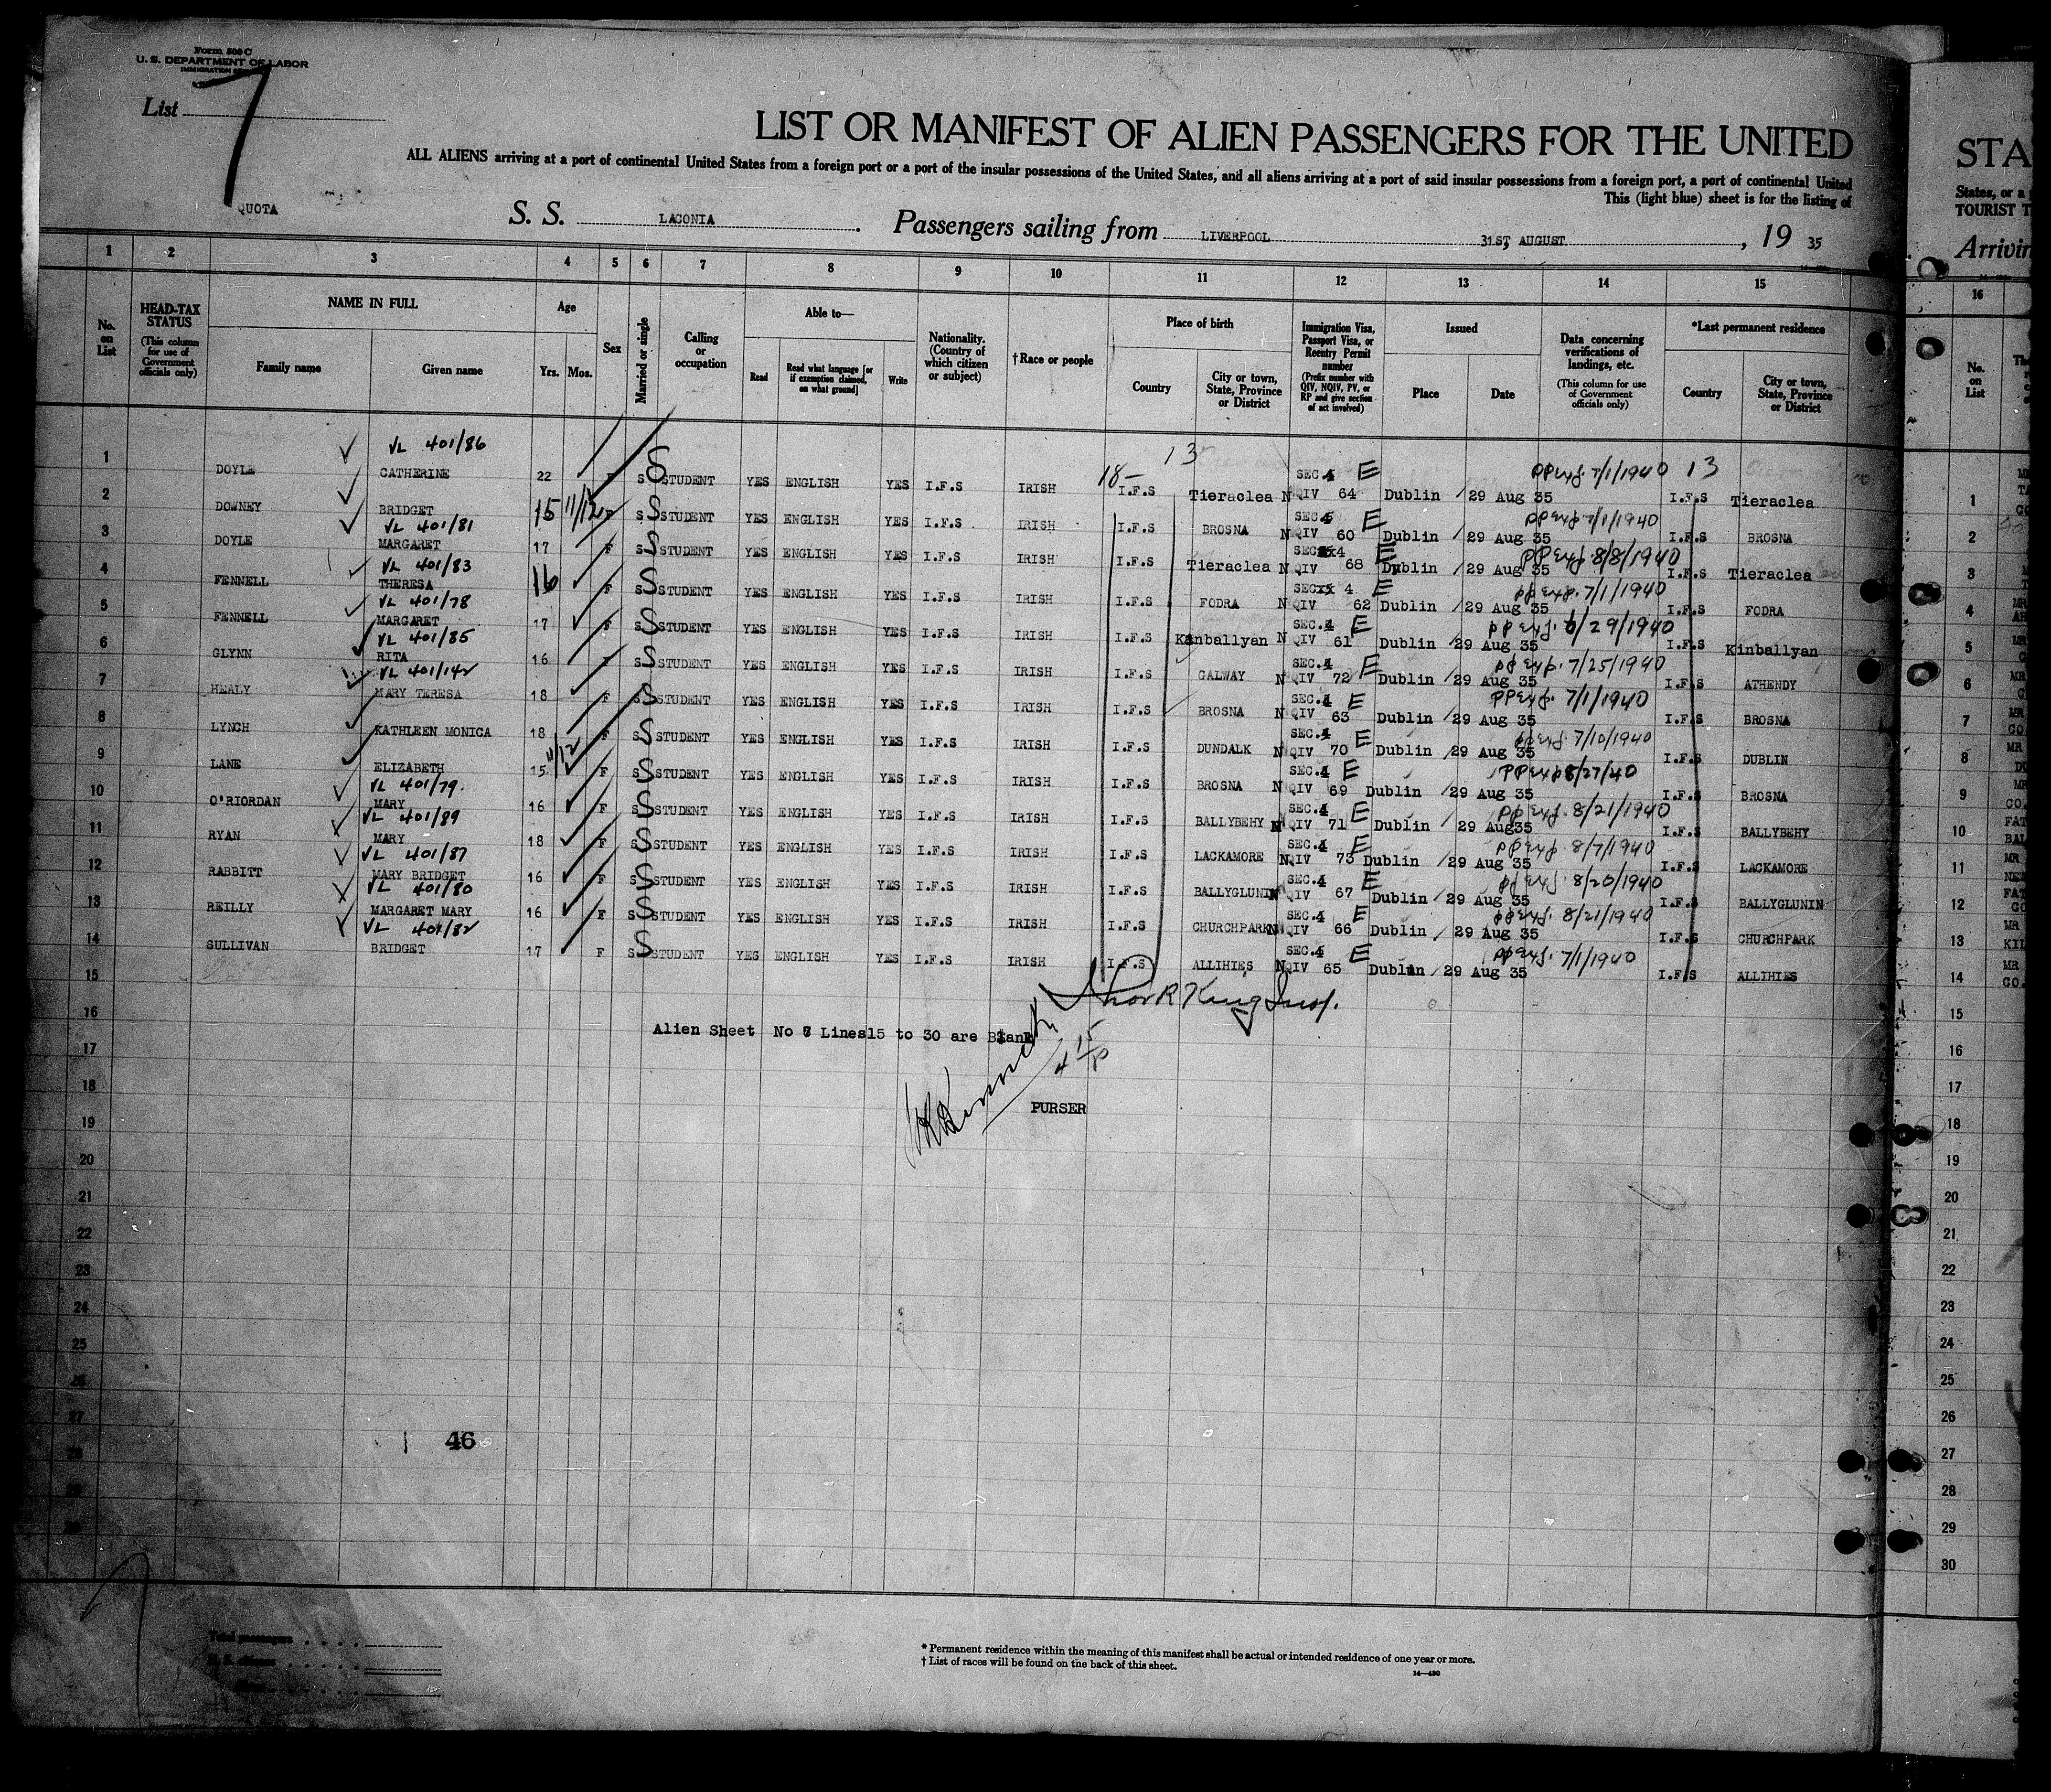 Form 500 C
U. S. DEPARTMENT OF LABOR
IMMIGRATION
List 7
LIST OR MANIFEST OF ALIEN PASSENGERS FOR THE UNITED
STA
ALL ALIENS arriving at a port of continental United States from a foreign port or a port of the insular possessions of the United States, and all aliens arriving at a port of said insular possessions from a foreign port, a port of continental United
States, or a
This (light blue) sheet is for the listing of
TOURIST T
QUOTA
S. S. LACONIA. Passengers sailing from LIVERPOOL 31ST, AUGUST, 19 35
Arrivin
1 2 3 4 5 6 7 8 9 10 11 12 13 14 15 16
No. on List
HEAD-TAX STATUS (This column for use of Government officials only)
NAME IN FULL Family name Given name
Age Yrs. Mos.
Sex
Married or single
Calling or occupation
Able to— Read Read what language [or if exemption claimed, on what ground] Write
Nationality. (Country of which citizen or subject)
† Race or people
Place of birth Country City or town, State, Province or District
Immigration Visa, Passport Visa, or Reentry Permit number (Prefix number with QIV, NQIV, PV, or RP and give section of act involved)
Issued Place Date
Data concerning verifications of landings, etc. (This column for use of Government officials only)
*Last permanent residence Country City or town, State, Province or District
No. on List
VL 401/86
18- 13 13
1 DOYLE CATHERINE 22 F S S STUDENT YES ENGLISH YES I.F.S IRISH I.F.S Tieraclea SEC.4 E NQIV 64 Dublin 29 Aug 35 PPExp. 7/1/1940 I.F.S Tieraclea 1
2 DOWNEY BRIDGET 15 11/12 F S S STUDENT YES ENGLISH YES I.F.S IRISH I.F.S BROSNA SEC.4 E NQIV 60 Dublin 29 Aug 35 PPExp. 7/1/1940 I.F.S BROSNA 2
VL 401/81
3 DOYLE MARGARET 17 F S S STUDENT YES ENGLISH YES I.F.S IRISH I.F.S Tieraclea SEC 4 E NQIV 68 Dublin 29 Aug 35 PPExp. 8/8/1940 I.F.S Tieraclea 3
VL 401/83
4 FENNELL THERESA 16 F S S STUDENT YES ENGLISH YES I.F.S IRISH I.F.S FODRA SEC 4 E NQIV 62 Dublin 29 Aug 35 PPExp. 7/1/1940 I.F.S FODRA 4
VL 401/78
5 FENNELL MARGARET 17 F S S STUDENT YES ENGLISH YES I.F.S IRISH I.F.S Kinballyan SEC.4 E NQIV 61 Dublin 29 Aug 35 PPExp. 6/29/1940 I.F.S Kinballyan 5
VL 401/85
6 GLYNN RITA 16 F S S STUDENT YES ENGLISH YES I.F.S IRISH I.F.S GALWAY SEC.4 E NQIV 72 Dublin 29 Aug 35 PPExp. 7/25/1940 I.F.S ATHENDY 6
VL 401/142
7 HEALY MARY TERESA 18 F S S STUDENT YES ENGLISH YES I.F.S IRISH I.F.S BROSNA SEC.4 E NQIV 63 Dublin 29 Aug 35 PPExp. 7/1/1940 I.F.S BROSNA 7
8 LYNCH KATHLEEN MONICA 18 F S S STUDENT YES ENGLISH YES I.F.S IRISH I.F.S DUNDALK SEC.4 E NQIV 70 Dublin 29 Aug 35 PPExp. 7/10/1940 I.F.S DUBLIN 8
9 LANE ELIZABETH 15 11/12 F S S STUDENT YES ENGLISH YES I.F.S IRISH I.F.S BROSNA SEC.4 E NQIV 69 Dublin 29 Aug 35 PPExp 8/27/40 I.F.S BROSNA 9
VL 401/79.
10 O'RIORDAN MARY 16 F S S STUDENT YES ENGLISH YES I.F.S IRISH I.F.S BALLYBEHY SEC.4 E NQIV 71 Dublin 29 Aug35 PPExp. 8/21/1940 I.F.S BALLYBEHY 10
VL 401/89
11 RYAN MARY 18 F S S STUDENT YES ENGLISH YES I.F.S IRISH I.F.S LACKAMORE SEC.4 E NQIV 73 Dublin 29 Aug 35 PPExp. 8/7/1940 I.F.S LACKAMORE 11
VL 401/87
12 RABBITT MARY BRIDGET 16 F S S STUDENT YES ENGLISH YES I.F.S IRISH I.F.S BALLYGLUNIN SEC.4 E QIV 67 Dublin 29 Aug 35 PPExp. 8/20/1940 I.F.S BALLYGLUNIN 12
VL 401/80
13 REILLY MARGARET MARY 16 F S S STUDENT YES ENGLISH YES I.F.S IRISH I.F.S CHURCHPARK SEC.4 E NQIV 66 Dublin 29 Aug 35 PPExp. 8/21/1940 I.F.S CHURCHPARK 13
VL 401/82
14 SULLIVAN BRIDGET 17 F S S STUDENT YES ENGLISH YES I.F.S IRISH I.F.S ALLIHIES SEC.4 E NQIV 65 Dublin 29 Aug 35 PPExp. 7/1/1940 I.F.S ALLIHIES 14
15 King Insp. 15
16 Alien Sheet No 7 Lines15 to 30 are Blank 16
17 4 15/P 17
18 PURSER 18
19 19
20 20
21 21
22 22
23 23
24 24
25 25
26 26
27 46 27
28 28
29 29
30 30
Total passengers
U. S. citizens
* Permanent residence within the meaning of this manifest shall be actual or intended residence of one year or more.
† List of races will be found on the back of this sheet.
14—430